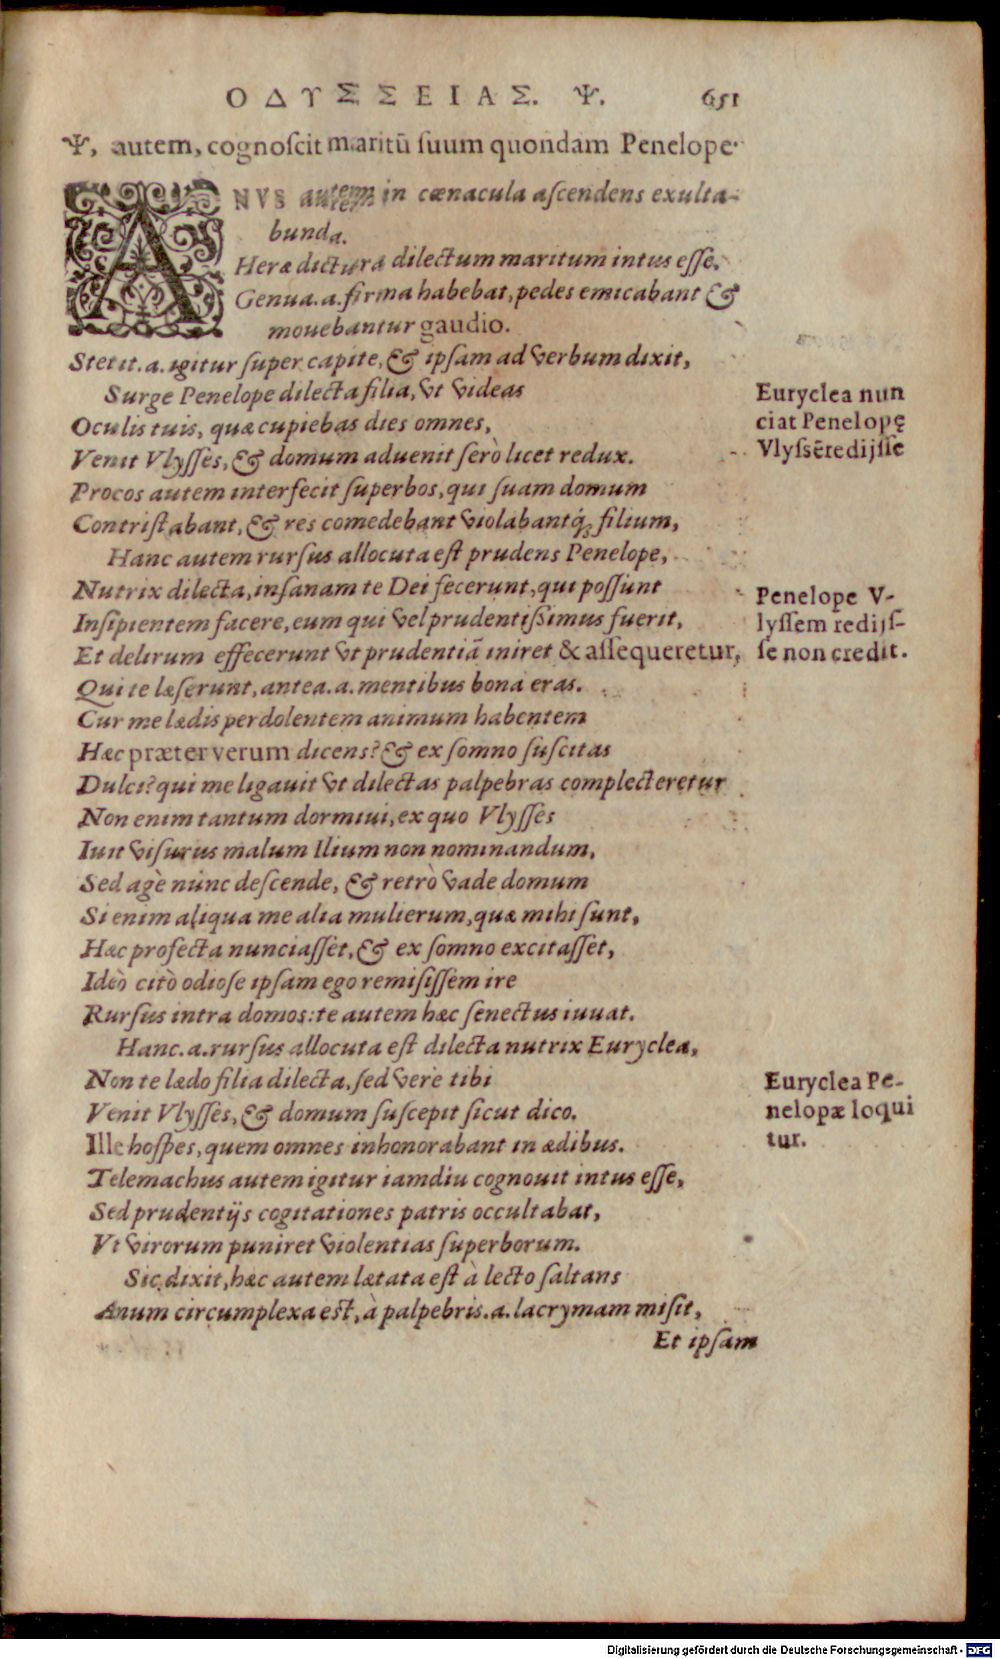 ΟΔΥΣΣΕΙΑΣ. Ψ. 651
Ψ, autem, cognoſcit maritū ſuum quondam Penelope.
ANVS autem in cœnacula aſcendens exulta-
bunda.
Heræ dictura dilectum maritum intus eſſe.
Genua.a.firma habebat, pedes emicabant &
mouebantur gaudio.
Stetit.a.igitur ſuper capite, & ipſam ad verbum dixit,
Surge Penelope dilecta filia, vt videas
Oculis tuis, quæ cupiebas dies omnes,
Venit Vlyſſes, & domum aduenit ſerò licet redux.
Procos autem interfecit ſuperbos, qui ſuam domum
Contriſtabant, & res comedebant violabantq́; filium,
Hanc autem rurſus allocuta eſt prudens Penelope,
Nutrix dilecta, inſanam te Dei fecerunt, qui poſſunt
Inſipientem facere, eum qui vel prudentiſſimus fuerit,
Et delirum effecerunt vt prudentiā iniret & aſſequeretur,
Qui te læſerunt, antea.a.mentibus bona eras.
Cur me lædis perdolentem animum habentem
Hæc præter verum dicens? & ex ſomno ſuſcitas
Dulci? qui me ligauit vt dilectas palpebras complecteretur
Non enim tantum dormiui, ex quo Vlyſſes
Iuit viſurus malum Ilium non nominandum,
Sed agè nunc deſcende, & retrò vade domum
Si enim aliqua me alia mulierum, quæ mihi ſunt,
Hæc profecta nunciaſſet, & ex ſomno excitaſſet,
Ideò citò odioſe ipſam ego remiſiſſem ire
Rurſus intra domos: te autem hæc ſenectus iuuat.
Hanc.a.rurſus allocuta eſt dilecta nutrix Euryclea,
Non te lædo filia dilecta, ſed verè tibi
Venit Vlyſſes, & domum ſuſcepit ſicut dico.
Ille hoſpes, quem omnes inhonorabant in ædibus.
Telemachus autem igitur iamdiu cognouit intus eſſe,
Sed prudentijs cogitationes patris occultabat,
Vt virorum puniret violentias ſuperborum.
Sic dixit, hæc autem lætata eſt à lecto ſaltans
Anum circumplexa eſt, à palpebris.a.lacrymam miſit,
Et ipſam
Euryclea nun
ciat Penelopę
Vlyſsē redijſſe
Penelope V-
lyſſem redijſ-
ſe non credit.
Euryclea Pe-
nelopæ loqui
tur.
Digitalisierung gefördert durch die Deutsche Forschungsgemeinschaft - DFG